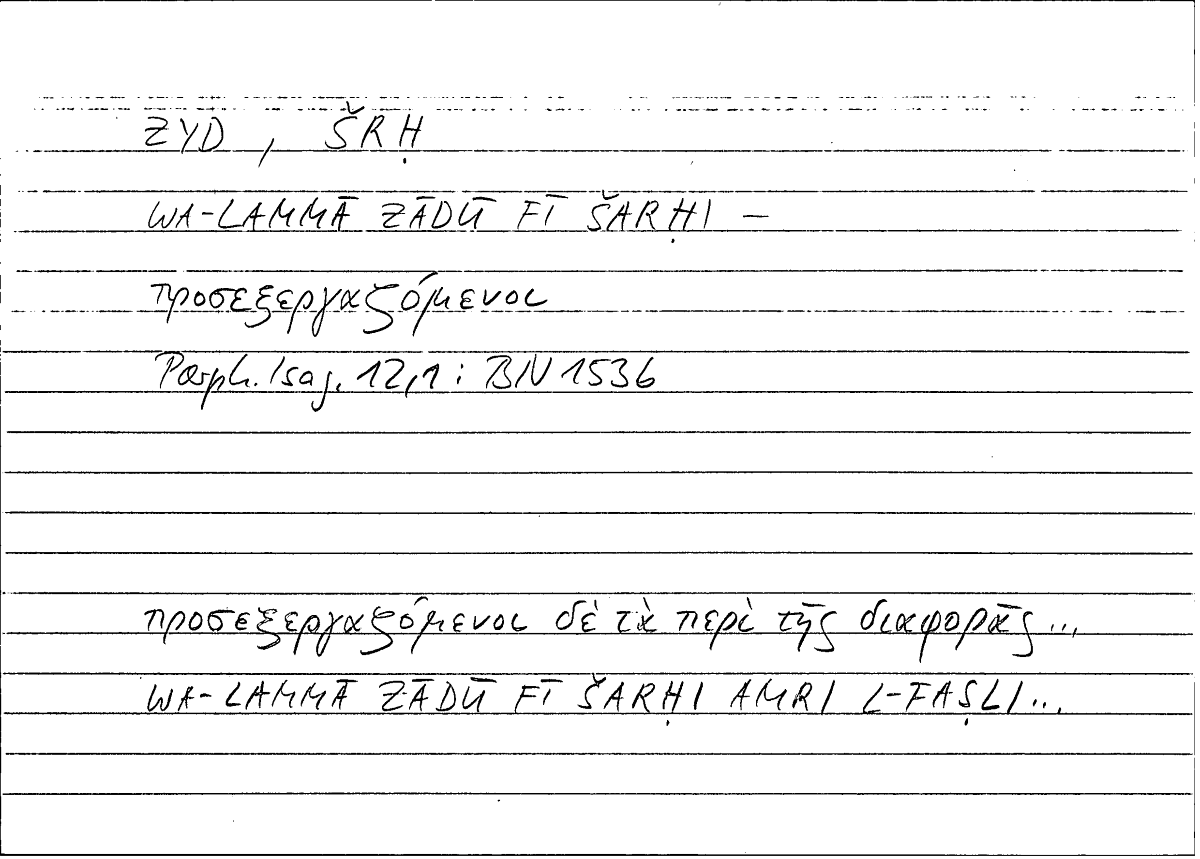 ZYD, ŠRḤ
WA-LAMMĀ ZĀDŪ FĪ ŠARḤI –
προσεξεργαζόμενοι
Porph. Isag. 12,1 : BN 1536
προσεξεργαζόμενοι δὲ τὰ περὶ τῆς διαφορᾶς...
WA-LAMMĀ ZĀDŪ FĪ ŠARḤI AMRI L-FAṢLI...